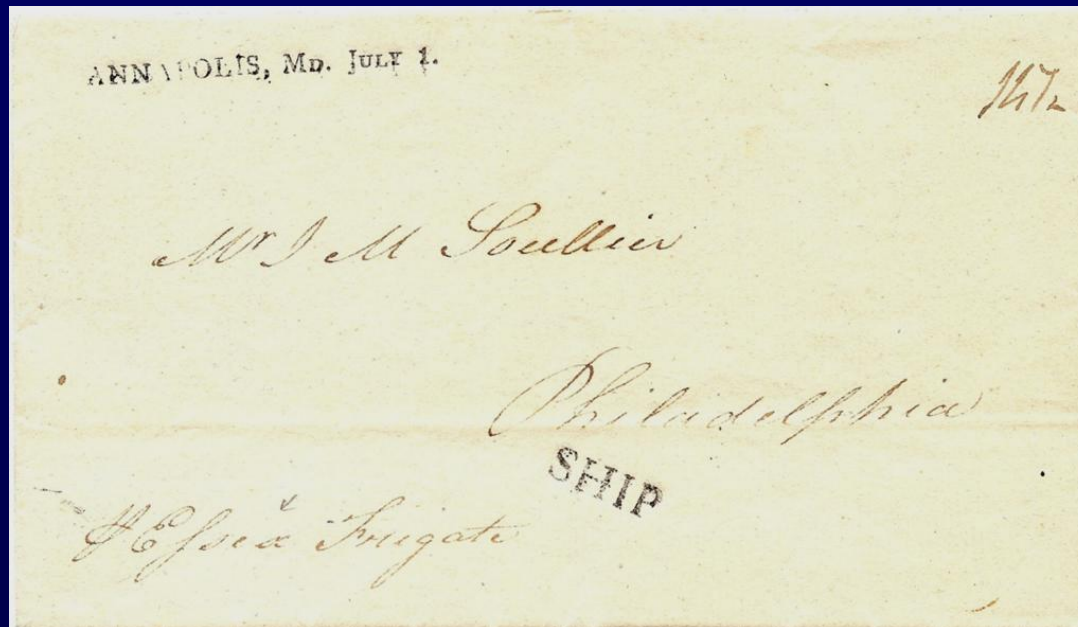 ANNAPOLIS, MD. JULY 1.
14½
Mr J M Soullier
Philadelphia
SHIP
⅌ Essex Frigate